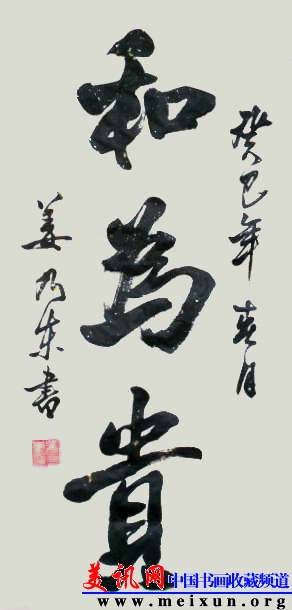 癸巳年春月
和为貴
姜乃東書
美讯网
中国书画收藏频道
www.meixun.org